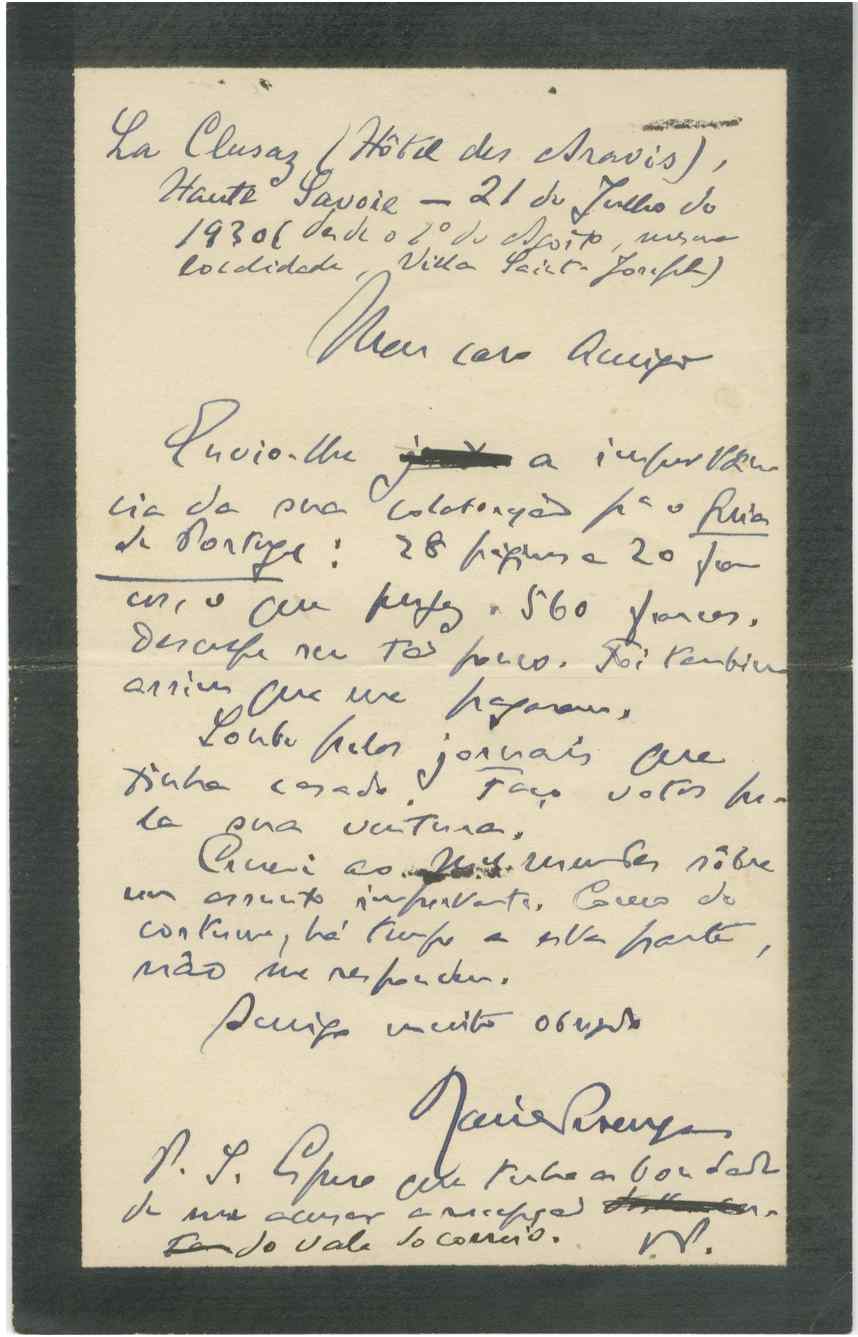 La Clusaz (Hôtel des Aravis),
Haute Savoie — 21 de Julho de
1930 (desde o 1º de Agôsto, mesma
localidade, Villa Saint Joseph)
Meu caro Amigo
Envio-lhe a importân-
cia da sua colaboração pª o Guia
de Portugal: 28 páginas a 20 fran
cos, o que perfaz 560 francos.
Desculpe ser tão pouco. Foi também
assim que me pagaram.
Soube pelos jornais que
tinha casado. Faço votos pe-
la sua ventura.
Escrevi ao sôbre
um assunto importante. Como de
costume, há tempo a esta parte,
não me respondeu.
Amigo muito obrigado
P. S. Espero que tenha a bondade
de me acusar a recepção
do vale do correio.